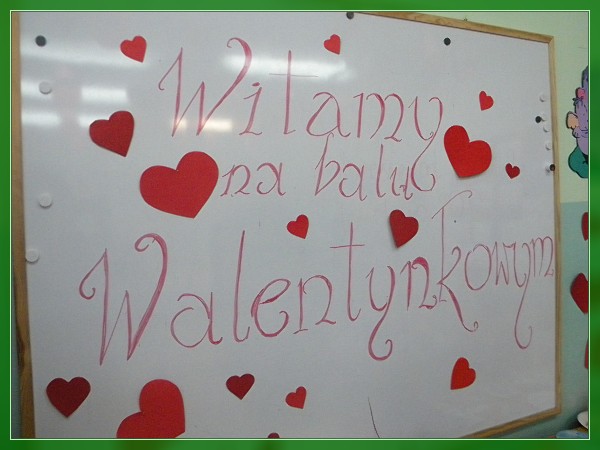 Witamy
na balu
Walentynkowym